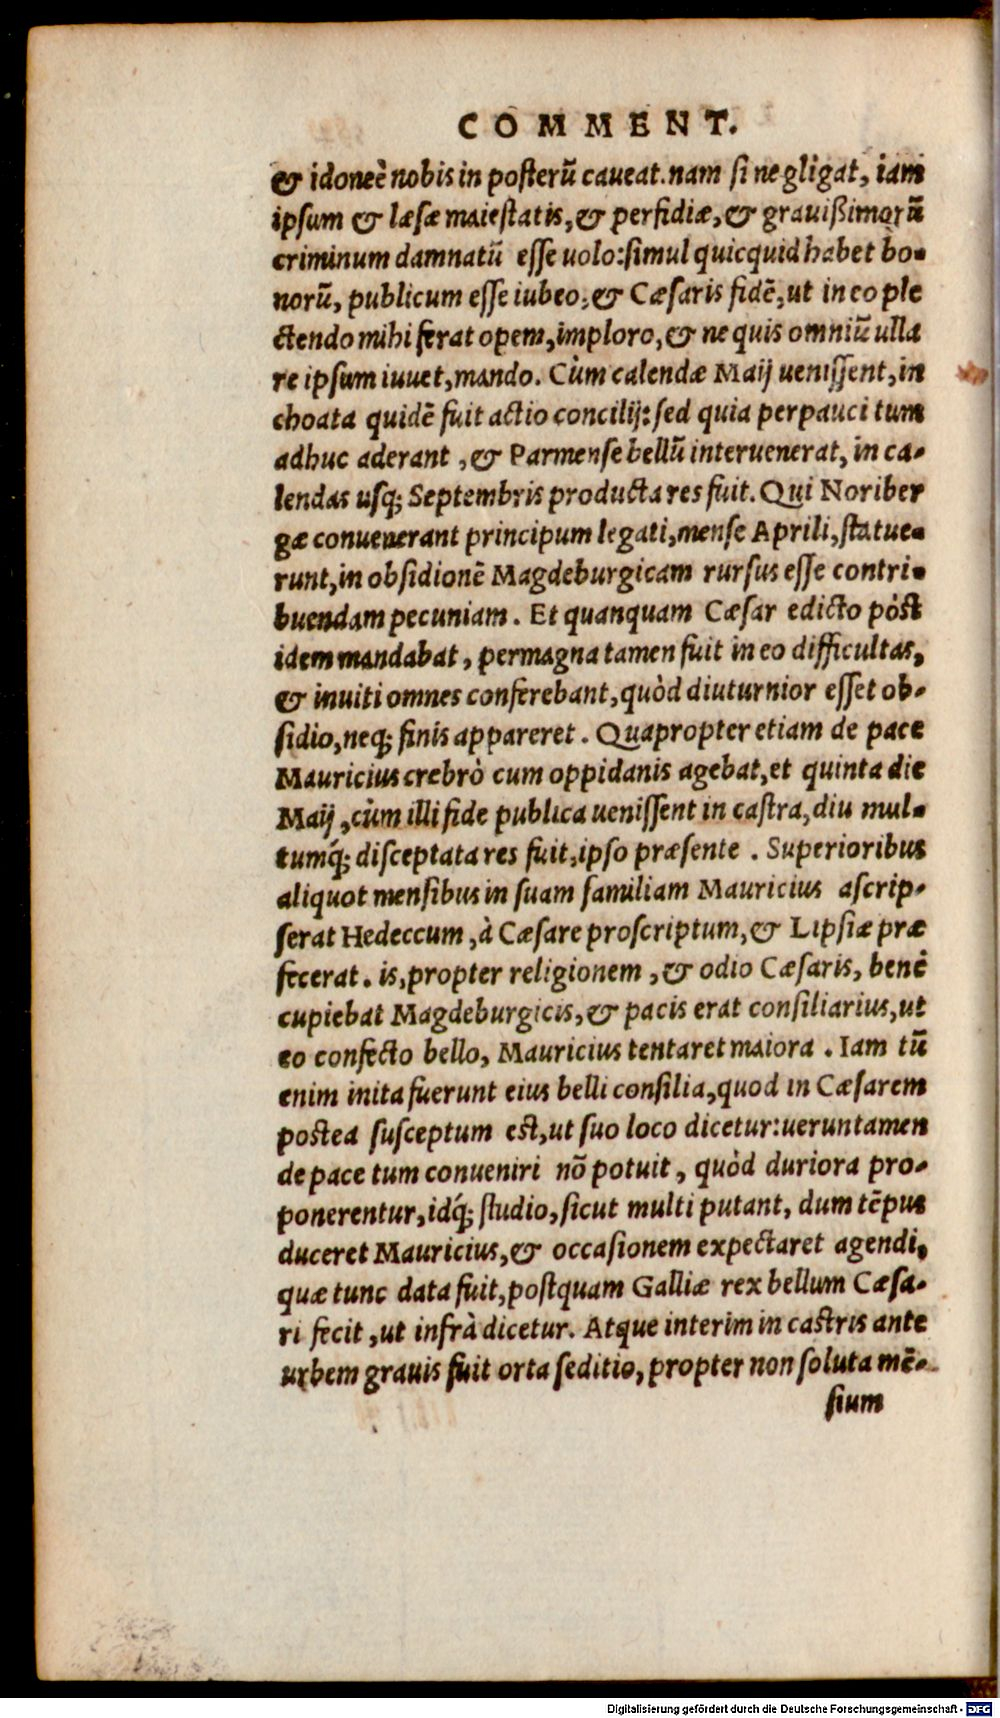 COMMENT.
& idoneè nobis in posterū caveat. nam si negligat, iam
ipsum & læsæ maiestatis, & perfidiæ, & grauißimorū
criminum damnatū esse uolo: simul quicquid habet bo-
norū, publicum esse iubeo, & Cæsaris fidē, ut in eo ple
ctendo mihi ferat opem, imploro, & ne quis omniū ulla
re ipsum iuuet, mando. Cùm calendæ Maij uenissent, in
choata quidē fuit actio concilij: sed quia perpauci tum
adhuc aderant, & Parmense bellū interuenerat, in ca-
lendas usq; Septembris producta res fuit. Qui Noriber
gæ conuenerant principum legati, mense Aprili, statue-
runt, in obsidionē Magdeburgicam rursus esse contri-
buendam pecuniam. Et quanquam Cæsar edicto pòst
idem mandabat, permagna tamen fuit in eo difficultas,
& inuiti omnes conferebant, quòd diuturnior esset ob-
sidio, neq; finis appareret. Quapropter etiam de pace
Mauricius crebrò cum oppidanis agebat, et quinta die
Maij, cùm illi fide publica uenissent in castra, diu mul-
tumq́; disceptata res fuit, ipso præsente. Superioribus
aliquot mensibus in suam familiam Mauricius ascrip-
serat Hedeccum, à Cæsare proscriptum, & Lipsiæ præ
fecerat. is, propter religionem, & odio Cæsaris, benè
cupiebat Magdeburgicis, & pacis erat consiliarius, ut
eo confecto bello, Mauricius tentaret maiora. Iam tū
enim inita fuerunt eius belli consilia, quod in Cæsarem
postea susceptum est, ut suo loco dicetur: ueruntamen
de pace tum conueniri nō potuit, quòd duriora pro-
ponerentur, idq́; studio, sicut multi putant, dum tēpus
duceret Mauricius, & occasionem expectaret agendi,
quæ tunc data fuit, postquam Galliæ rex bellum Cæsa-
ri fecit, ut infrà dicetur. Atque interim in castris ante
urbem grauis fuit orta seditio, propter non soluta mē-
sium
Digitalisierung gefördert durch die Deutsche Forschungsgemeinschaft - DFG